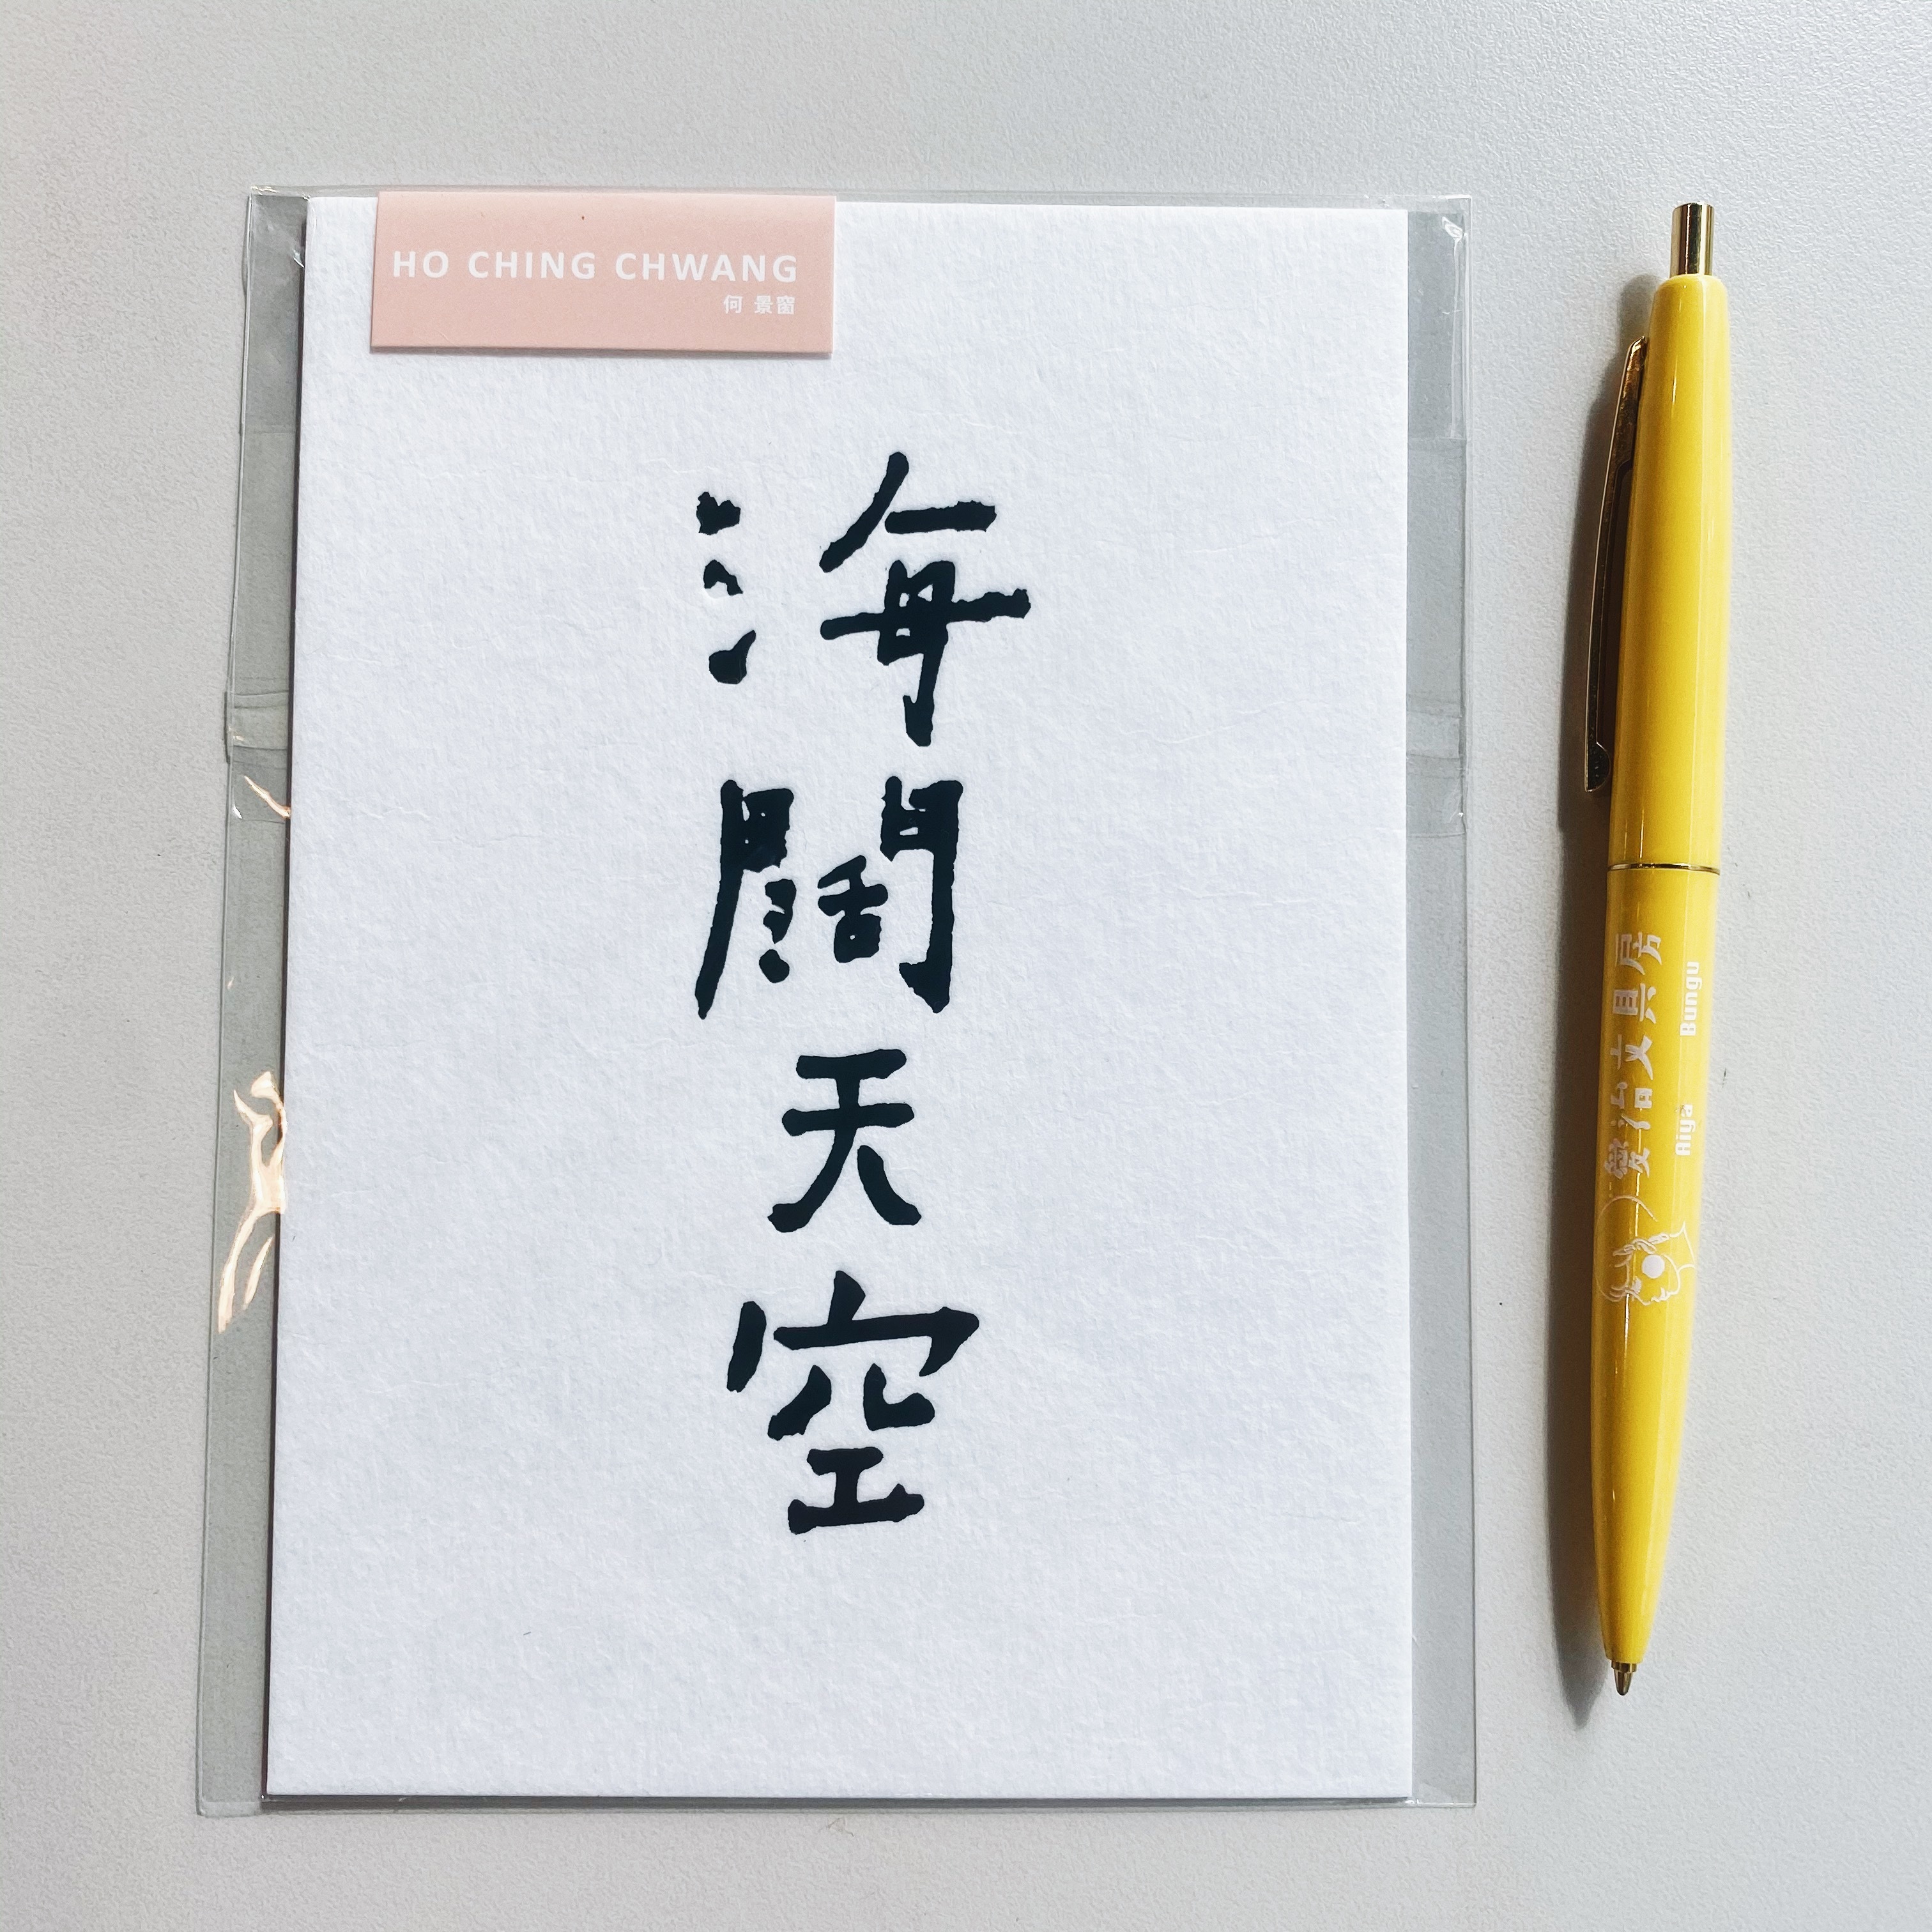 HO CHING CHWANG
何 景窗
海闊天空
愛治文具房
Aiya Bungu